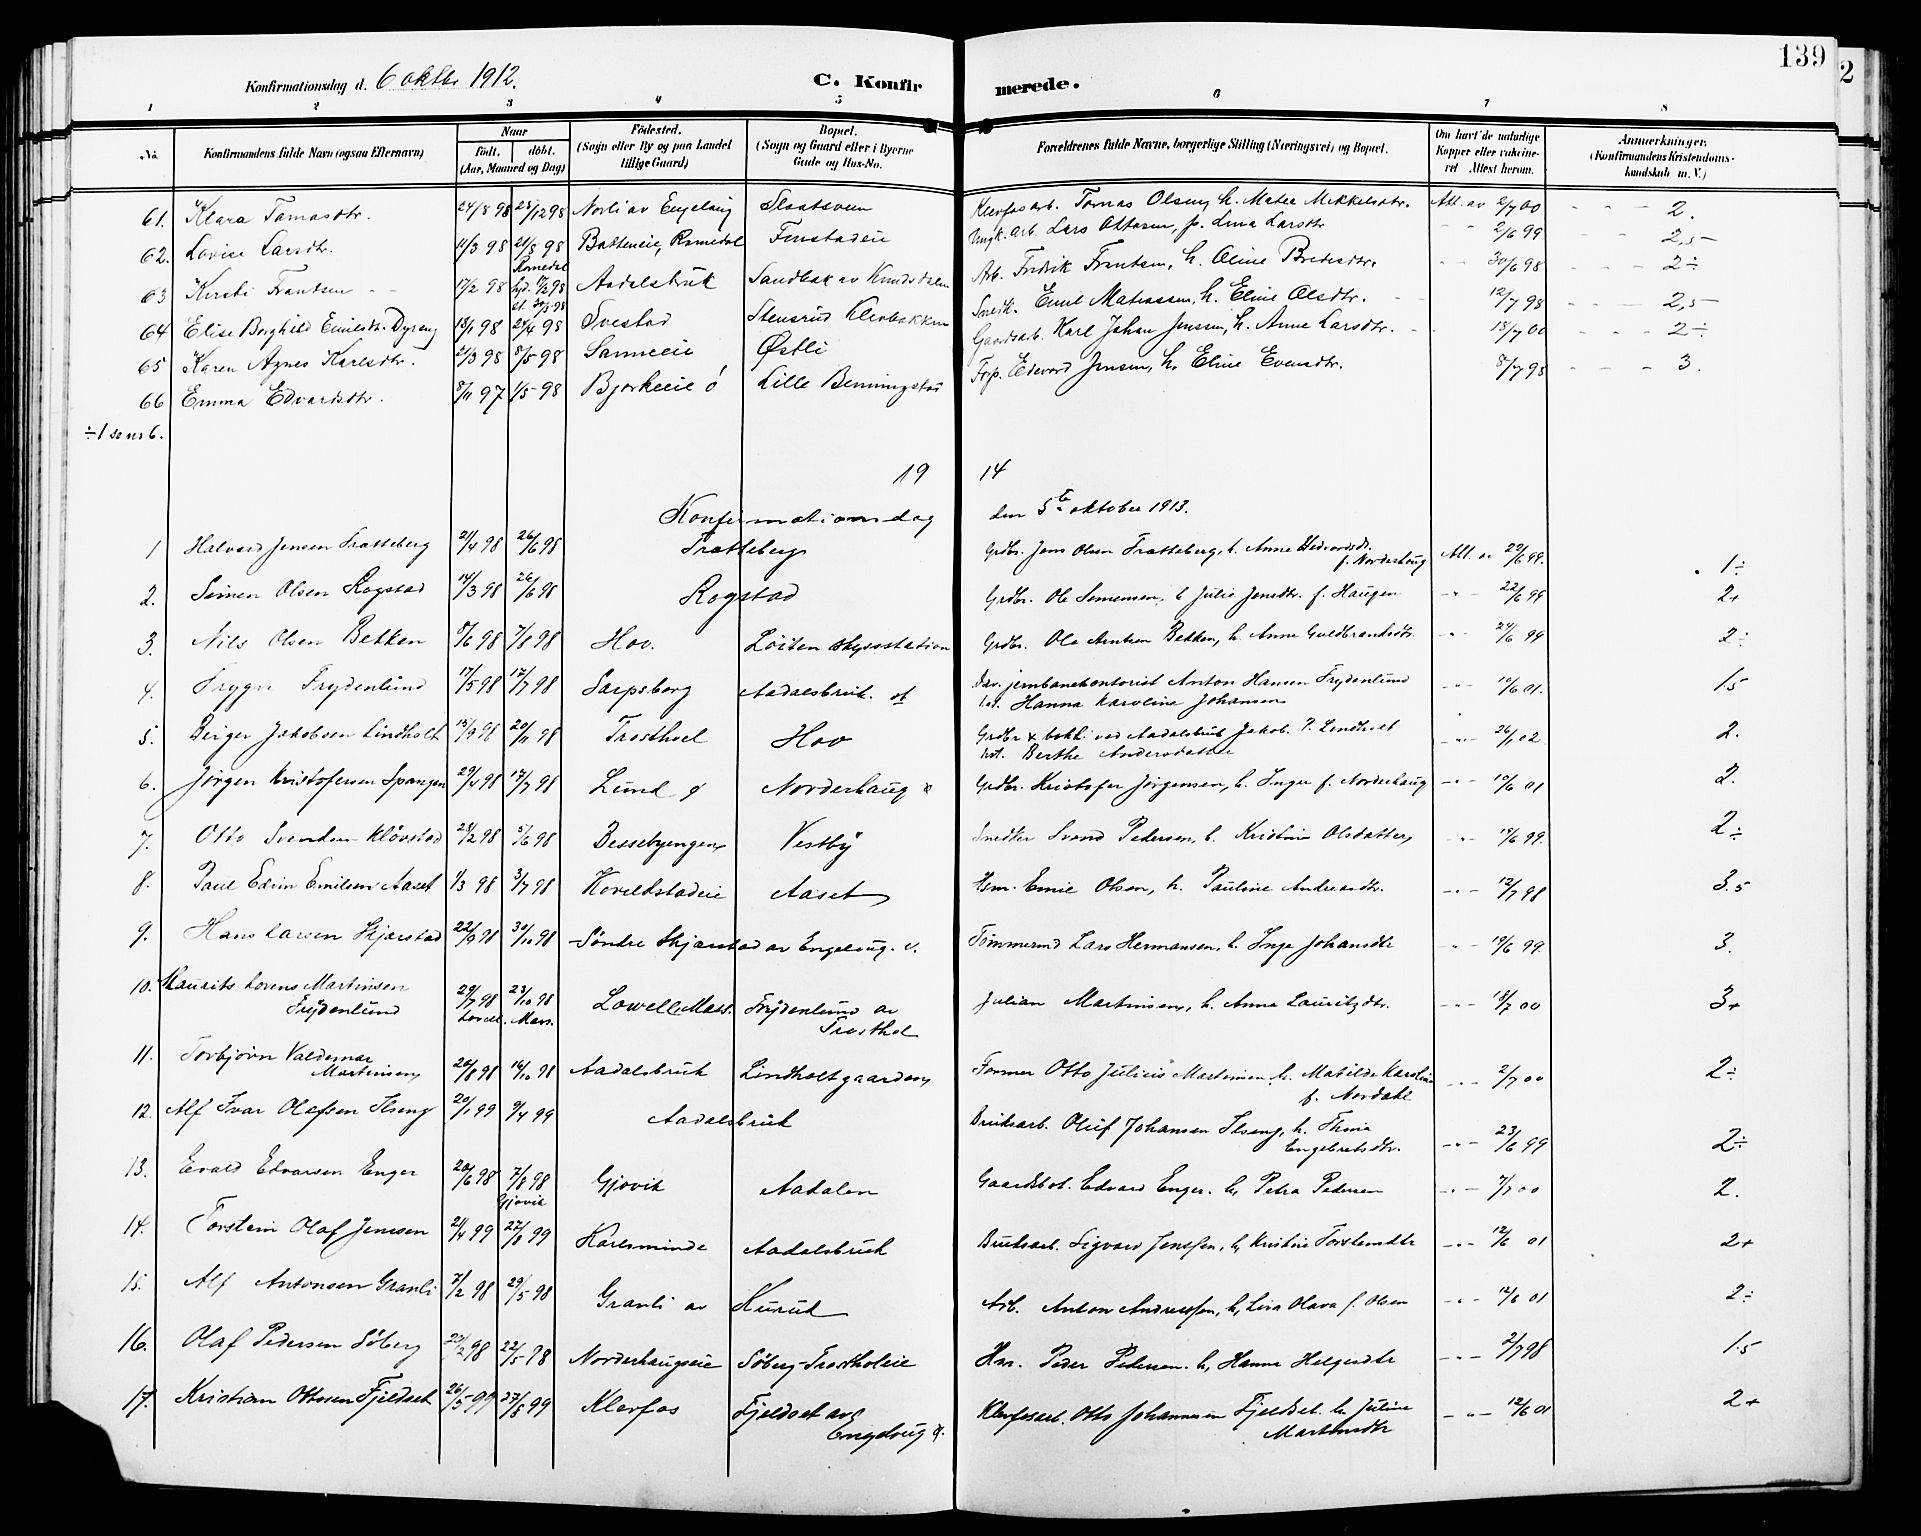 139
2
Konfirmationsdag d. 6 oktbr 1912. C. Konfir merede.
1 2 3 4 5 6 7 8
No. Konfirmandens fulde Navn (ogsaa Efternavn) Naar født, døbt. (Aar, Maaned og Dag) Fødested. (Sogn eller By og paa Landet tillige Gaard) Bopæl. (Sogn og Gaard eller i Byerne Gade og Hus-No. Forældrenes fulde Navne, borgerlige Stilling (Næringsvei) og Bopæl. Om havt de naturlige Kopper eller vaccineret Attest herom. Anmærkninger. (Konfirmandens Kristendomskundskab m. V.)
61. Klara Tomasdtr. 24/8 98 28/12 98 Norli av Engelaug Staatsveen Klevfosarb. Tomas Olsen, h. Matea Mikkelsdtr. Att. av 2/7 00 2.
62. Lovise Larsdtr. 11/3 98 21/8 98 Batteneie, Romedal Finstadeie Ungk. arb. Lars Ottosen, p. Lina Larsdtr 2/6 99 2,5
63 Kirsti Frantsen 17/2 98 Romedal Aadalsbruk Sandbak av Knudsdalen Arb. Fredrik Frantsen, h. Oline Bredesdtr. 30/6 98 2÷
64 Elise Borghild Emilsdtr. Dyreng 18/1 98 24/4 98 Svestad Stensrud Klevbakken Snedk. Emil Matiassen, h. Eline Olsdtr. 12/7 98 2,5
65 Karen Agnes Karlsdtr. 21/3 98 8/5 98 Sanneeie Østli Gaardsarb. Karl Johan Jensen, h. Anne Larsdtr. 18/7 00 2÷
66 Emma Edvardsdtr. 8/11 97 1/5 98 Bjørkeeie ø Lille Benningstad Frp. Edevard Jensen, h. Eline Evensdtr. 8/7 98 3.
÷1 se nr 6.
19 14
Konfirmationsdag den 5te oktober 1913.
1 Halvard Jensen Tratteberg 21/4 98 26/6 98 Tratteberg Grdbr. Jens Olsen Tratteberg, h. Anne f. Norderhaug Att. av 29/6 99. 1÷
2. Simen Olsen Rogstad 14/3 98 26/6 98 Rogstad Grdbr. Ole Semensen, h Julie Jensdtr. f. Haugen 22/6 99 2+
3. Nils Olsen Bekken 8/6 98 7/8 98 Hov. Løiten skysstation Grdbr. Ole Arntsen Bekken, h. Anne Guldbrandsdtr. 24/6 99 2÷
4. Trygve Frydenlund 17/5 98 17/7 98 Sarpsborg Aadalsbruk. st Dav. jernbanekontorist Anton Hansen Frydenlund
Hanna Karoline Johansen 10/6 01. 1.5
5. Birger Jakobsen Lindholt 13/9 98 20/11 98 Trosthoel Hov Grdbr & bokh. ved Aadalsbruk Jakob P. Lindholt
hst. Berthe Andersdatter 26/1 02 2.
6. Jørgen Kristofersen Spangen 29/4 98 17/7 98 Lund ø Norderhaug Grdbr. Kristofer Jørgensen, h. Inger f. Norderhaug 10/6 01 2.
7. Otto Svendsen Kløvstad 28/2 98 5/6 98 Bessebyengen Vestby Snedker Svend Pedersen, h. Kristine Olsdatter 19/6 99. 2÷
8. Paul Edvin Emilsen Aaset 1/3 98 3/7 98 Koveldstadeie Aaset Hsm. Emil Olsen, h. Pauline Andreasdtr. 12/7 98 3.5
9. Hans Larsen Skjærstad 22/9 98 30/10 98 Søndre Skjærstad av Engelaug. v. Tømmermd Lars Hermansen, h. Inge Johansdtr 19/6 99 3.
10. Maurits Lorens Martinsen
Frydenlund 29/7 98 23/10 98
Lowell. Mass. Lowell Mass. Frydenlund av
Trosthol Julian Martinsen, h. Anna Lauritsdtr. 18/7 00 3+
11. Torbjørn Valdemar
Martinsen 20/8 98 16/10 98 Aadalsbruk Lindholtgaarden Former Otto Julius Martinsen h. Matilde Karoline
f. Nordahl 2/7 00 2÷
12. Alf Ivar Olafsen Ilseng 20/1 99 9/4 99 Aadalsbruk Bruksarb. Oluf Johansen Ilseng, h. Thina
Engebretsdtr. 23/6 99 2÷
13. Evald Edvarsen Enger 20/6 98 7/8 98
Gjøvik Gjøvik Aadalen Gaardsbst. Edvard Enger. h. Petra Pedersen 7/7 00 2.
14. Torstein Olaf Jenssen 21/4 99 27/8 99 Karlsminde Aadalsbruk Bruksarb. Sigvard Jenssen, h. Kristine Torstensdtr 12/6 01 2+
15. Alf Antonsen Granli 7/2 98 29/5 98 Granli av Hurud Arb. Anton Andreassen, h. Lina Olava f. Olsen 12/6 01 2÷
16. Olaf Pedersen Søberg 23/2 98 22/5 98 Norderhaugseie Søberg-Trostholeie Hsm. Peder Pedersen. h. Hanna Helgesdtr 2/7 98 1.5
17. Kristian Ottosen Fjeldset 26/5 99 27/8 99 Klevfos Fjeldset av
Engelaug ø. Klevfosarb. Otto Johannesen Fjeldset. h. Juline
Martinsdtr 12/6 01 2+